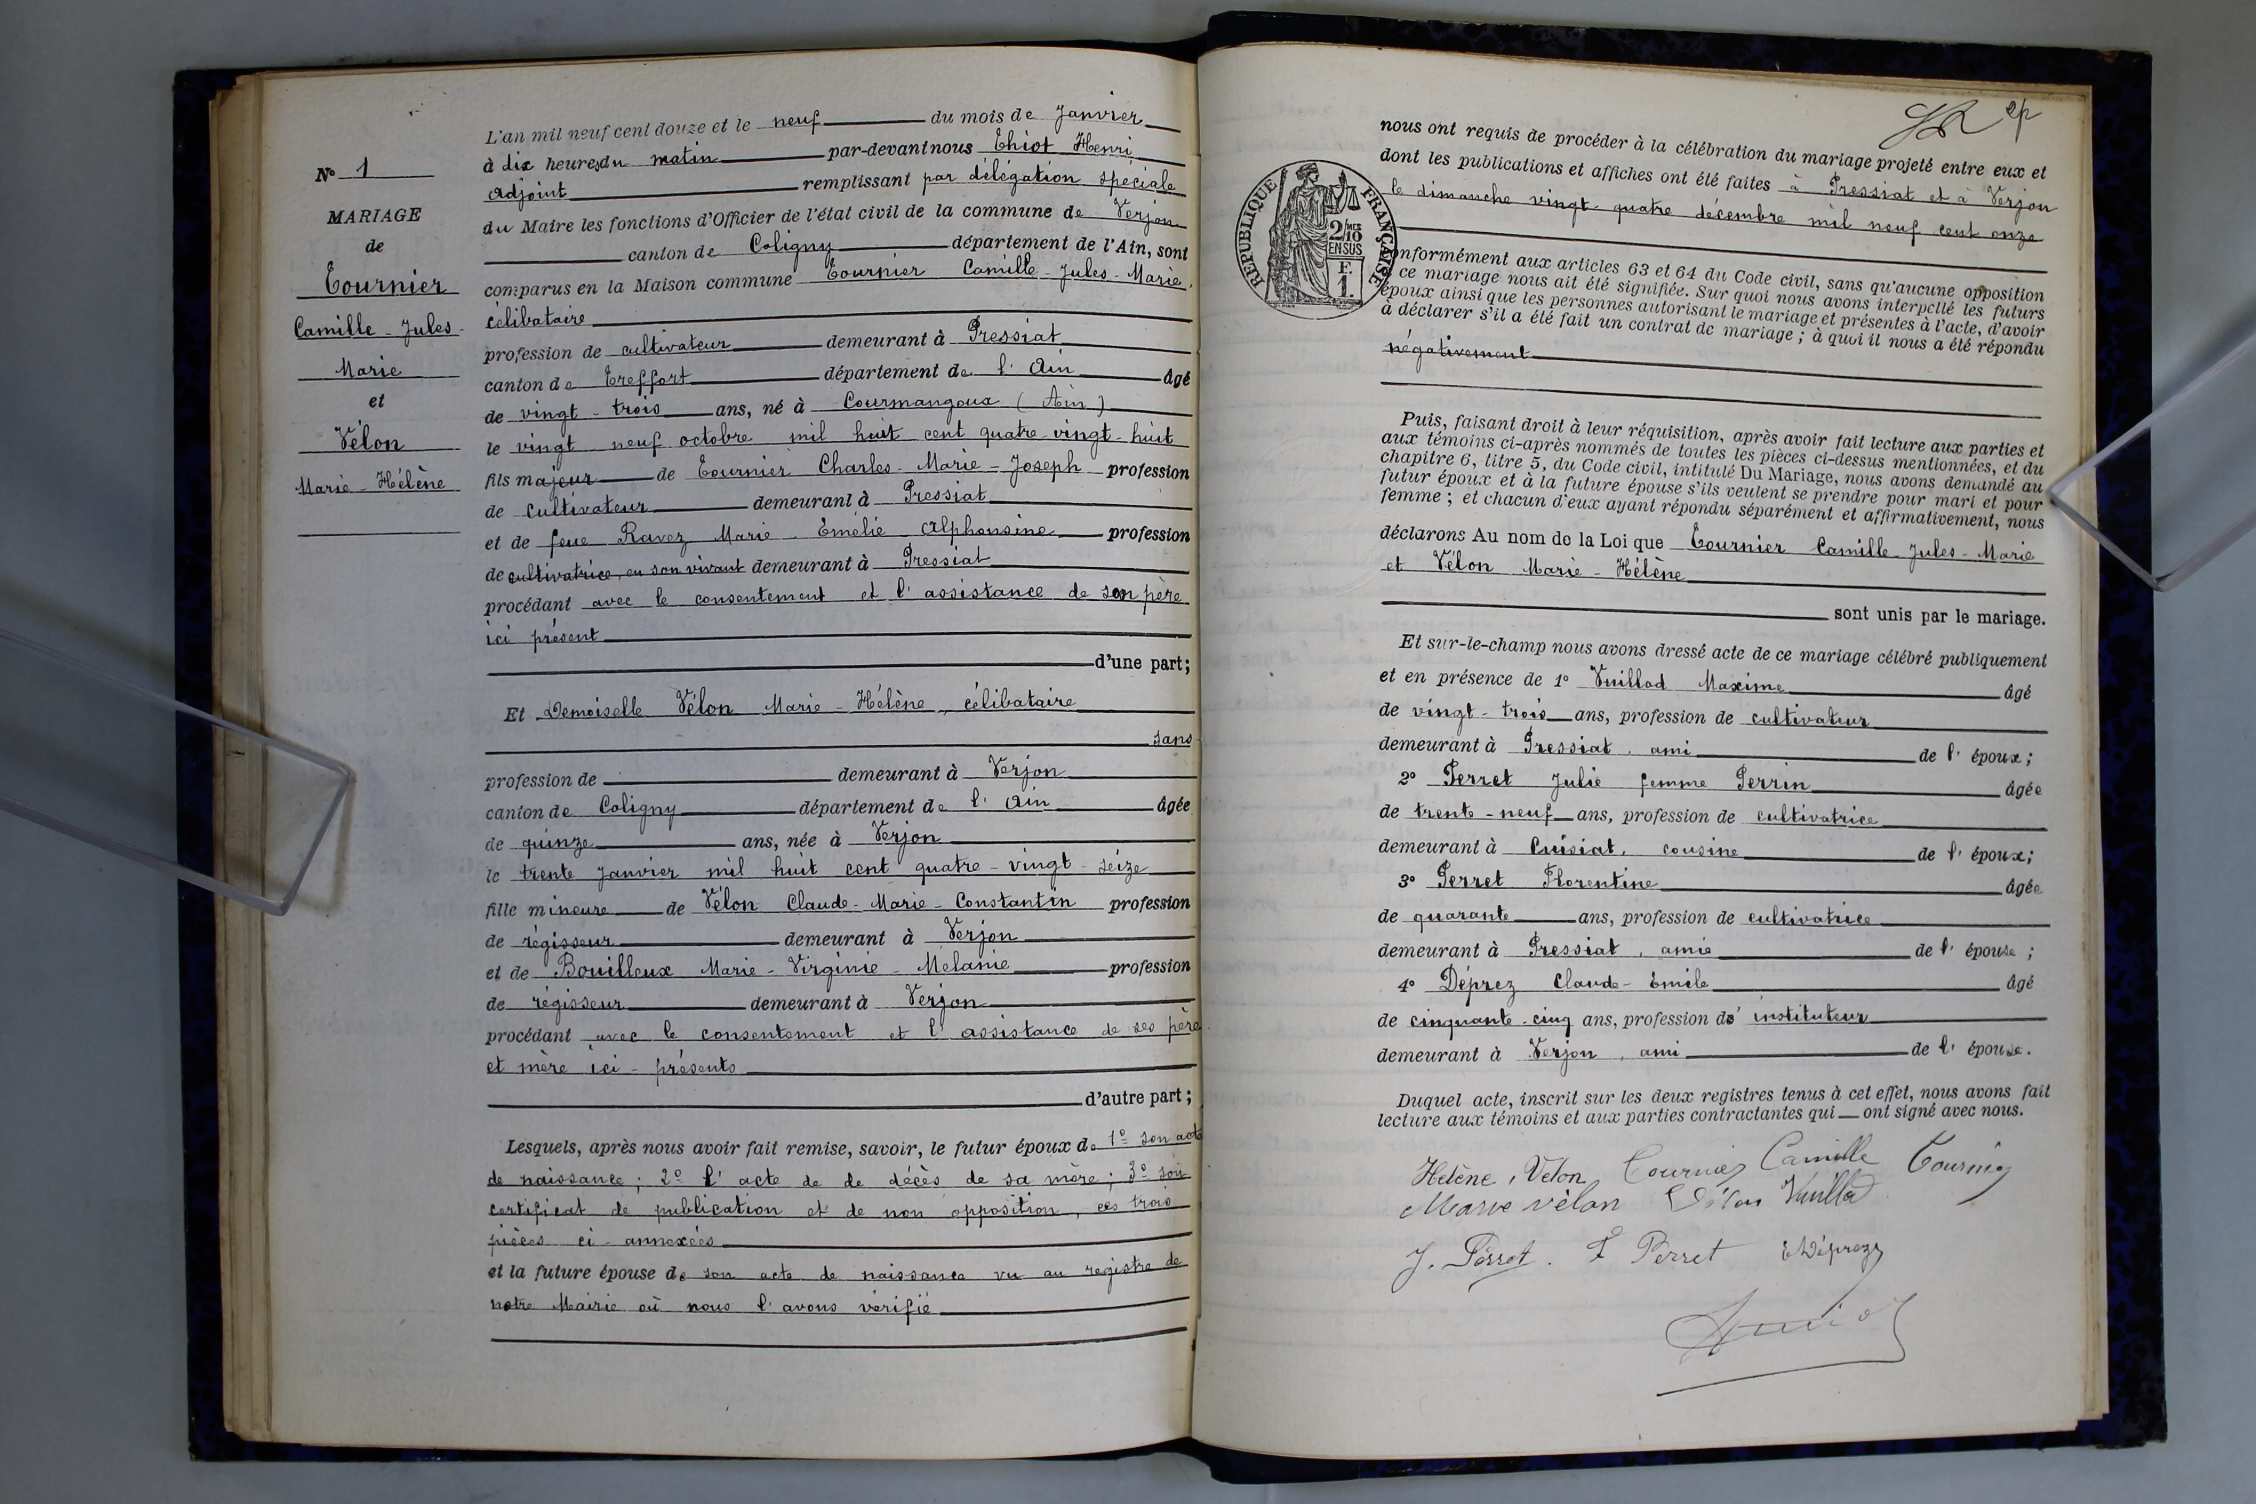 N° 1
MARIAGE
de
Tournier
Camille - Jules -
Marie
et
Vélon
Marie - Hélène
L'an mil neuf cent douze et le neuf du mois de Janvier
à dix heures du matin par-devant nous Thiot Henri
adjoint remplissant par délégation spéciale
du Maire les fonctions d'Officier de l'état civil de la commune de Verjon
canton de Coligny département de l'Ain, sont
comparus en la Maison commune Tournier Camille - Jules - Marie,
célibataire
profession de cultivateur demeurant à Pressiat
canton de Treffort département de l'Ain âgé
de vingt - trois ans, né à Courmangoux (Ain)
le vingt neuf octobre mil huit cent quatre - vingt - huit
fils majeur de Tournier Charles - Marie - Joseph profession
de cultivateur demeurant à Pressiat
et de feue Ravez Marie - Emélie Alphonsine profession
de cultivatrice, en son vivant demeurant à Pressiat
procédant avec le consentement et l'assistance de son père
ici présent
d'une part;
Et Demoiselle Vélon Marie - Hélène, célibataire
sans
profession de demeurant à Verjon
canton de Coligny département de l'Ain âgée
de quinze ans, née à Verjon
le trente Janvier mil huit cent quatre - vingt - seize
fille mineure de Vélon Claude - Marie - Constantin profession
de régisseur demeurant à Verjon
et de Bouilloux Marie - Virginie - Mélanie profession
de régisseur demeurant à Verjon
procédant avec le consentement et l'assistance de ses père
et mère ici - présents
d'autre part;
Lesquels, après nous avoir fait remise, savoir, le futur époux de 1° son acte
de naissance; 2° l'acte de de décès de sa mère; 3° son
certificat de publication et de non opposition, ces trois
pièces ci - annexées
et la future épouse de son acte de naissance vu au registre de
notre Mairie où nous l'avons vérifié
ep
nous ont requis de procéder à la célébration du mariage projeté entre eux et
dont les publications et affiches ont été faites à Pressiat et à Verjon
le dimanche vingt - quatre décembre mil neuf cent onze
RÉPUBLIQUE FRANÇAISE
2/10 MES
EN SUS
F.
1.
conformément aux articles 63 et 64 du Code civil, sans qu'aucune opposition
à ce mariage nous ait été signifiée. Sur quoi nous avons interpellé les futurs
époux ainsi que les personnes autorisant le mariage et présentes à l'acte, d'avoir
à déclarer s'il a été fait un contrat de mariage; à quoi il nous a été répondu
négativement
Puis, faisant droit à leur réquisition, après avoir fait lecture aux parties et
aux témoins ci-après nommés de toutes les pièces ci-dessus mentionnées, et du
chapitre 6, titre 5, du Code civil, intitulé Du Mariage, nous avons demandé au
futur époux et à la future épouse s'ils veulent se prendre pour mari et pour
femme; et chacun d'eux ayant répondu séparément et affirmativement, nous
déclarons Au nom de la Loi que Tournier Camille - Jules - Marie
et Vélon Marie - Hélène
sont unis par le mariage.
Et sur-le-champ nous avons dressé acte de ce mariage célébré publiquement
et en présence de 1° Vuillod Maxime âgé
de vingt - trois ans, profession de cultivateur
demeurant à Pressiat, ami de l'époux;
2° Perret Julie femme Perrin âgée
de trente - neuf ans, profession de cultivatrice
demeurant à Cuisiat, cousine de l'époux;
3° Perret Florentine âgée
de quarante ans, profession de cultivatrice
demeurant à Pressiat, amie de l'épouse;
4° Déprez Claude - Emile âgé
de cinquante - cinq ans, profession d'instituteur
demeurant à Verjon, ami de l'épouse.
Duquel acte, inscrit sur les deux registres tenus à cet effet, nous avons fait
lecture aux témoins et aux parties contractantes qui ont signé avec nous.
Hélène Vélon Tournier Camille Tournier
Marie vélon Vélon Vuillod
J. Perret. F Perret E Déprez